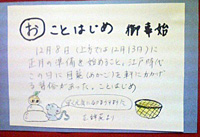 お ことはじめ 御事始
12月8日(上方では12月13日)に
正月の準備を始めること。江戸時代
この日に目籠(めかご)を軒にかかげ
る習慣があった。ことから